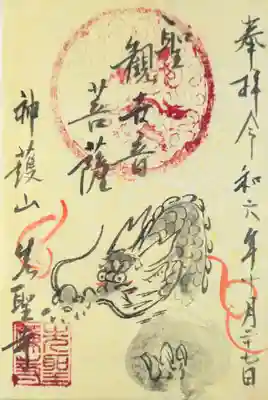 奉拝 令和六年十月二十七日
聖
観世音
菩薩
神護山 先聖寺